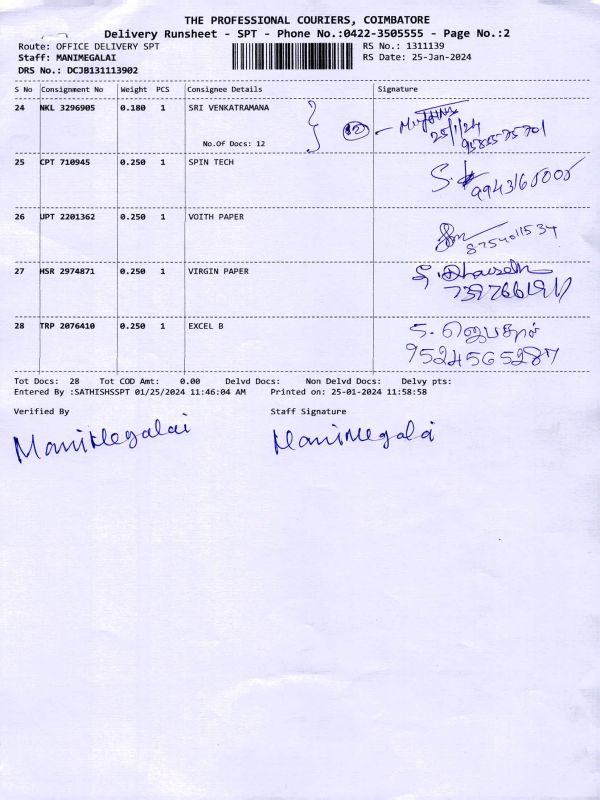 THE PROFESSIONAL COURIERS, COIMBATORE
Delivery Runsheet - SPT - Phone No.:0422-3505555 - Page No.:2
Route: OFFICE DELIVERY SPT RS No.: 1311139
Staff: MANIMEGALAI RS Date: 25-Jan-2024
DRS No.: DCJB131113902
S No Consignment No Weight PCS Consignee Details Signature
24 NKL 3296905 0.180 1 SRI VENKATRAMANA
No.Of Docs: 12
12
25/1/24
25 CPT 710945 0.250 1 SPIN TECH
26 UPT 2201362 0.250 1 VOITH PAPER
8754011534
27 HSR 2974871 0.250 1 VIRGIN PAPER
28 TRP 2076410 0.250 1 EXCEL B
9524565287
Tot Docs: 28 Tot COD Amt: 0.00 Delvd Docs: Non Delvd Docs: Delvy pts:
Entered By :SATHISHSSPT 01/25/2024 11:46:04 AM Printed on: 25-01-2024 11:58:58
Verified By Staff Signature
ManiMegalai ManiMegalai